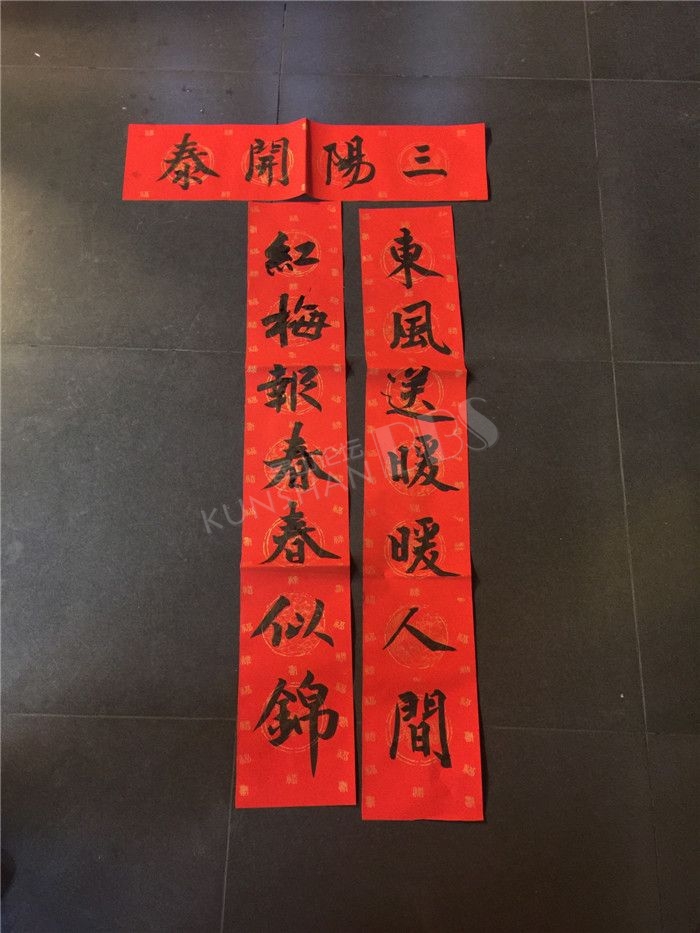 三陽開泰
東風送暖暖人間
紅梅報春春似錦
KUNSHAN BBS